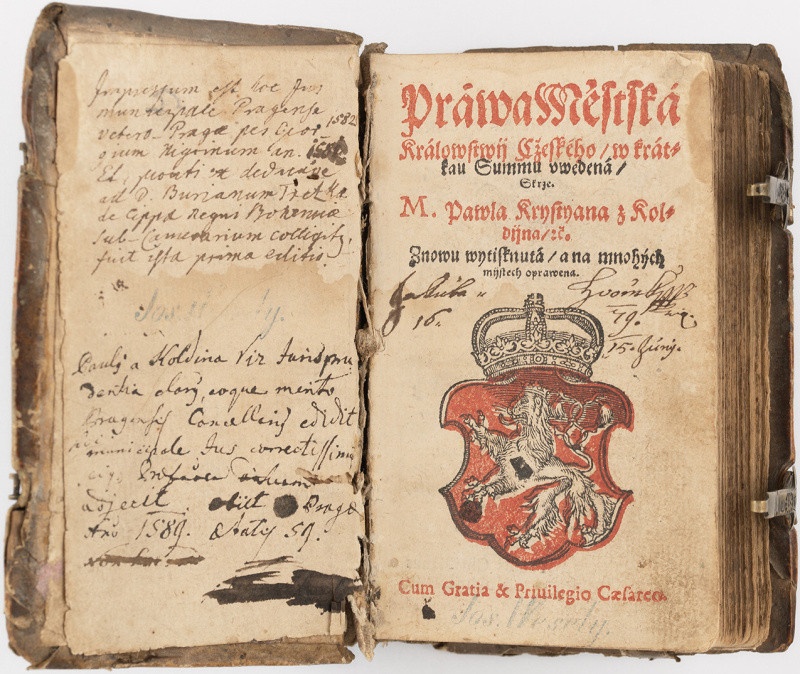 Impressum est hoc Jus
municipale Pragense
vetero-Pragæ per Geor-
1582
gium Nigrinum an.
Et, ex dedica
ad D. Burianum Trčka
de Lippa Regni Bohemiæ
sub-Camerarium colligitr,
fuit ista prima editio.
Jos. Wesely.
Paulꝰ a Koldina Vir Jurispru
dentia clarꝰ, eoque merito
Pragensis Cancellariꝰ edidit
municipale Jus correctissimu
adjecit obiit Pragæ
Año 1589. ætatis 59.
Práwa Městská
Králowstwij Cžeského / w krát-
kau Summu vwedená /
Skrze.
M. Pawla Krystyana z Kol-
dijna / ꝛc̃.
Znowu wytisknutá / a na mnohých
mijstech oprawena.
16.
79.
15. Junij.
Cum Gratia & Priuilegio Cæsareo.
Jos. Wesely.